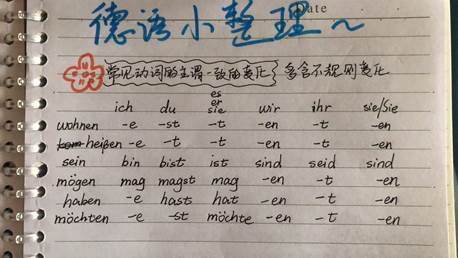 Date
德语小整理～
常见动词的主谓一致的变化 多含不规则变化
es
er
ich du sie wir ihr sie/Sie
wohnen -e -st -t -en -t -en
heißen -e -t -t -en -t -en
sein bin bist ist sind seid sind
mögen mag magst mag -en -t -en
haben -e hast hat -en -t -en
möchten -e -st möchte -en -t -en